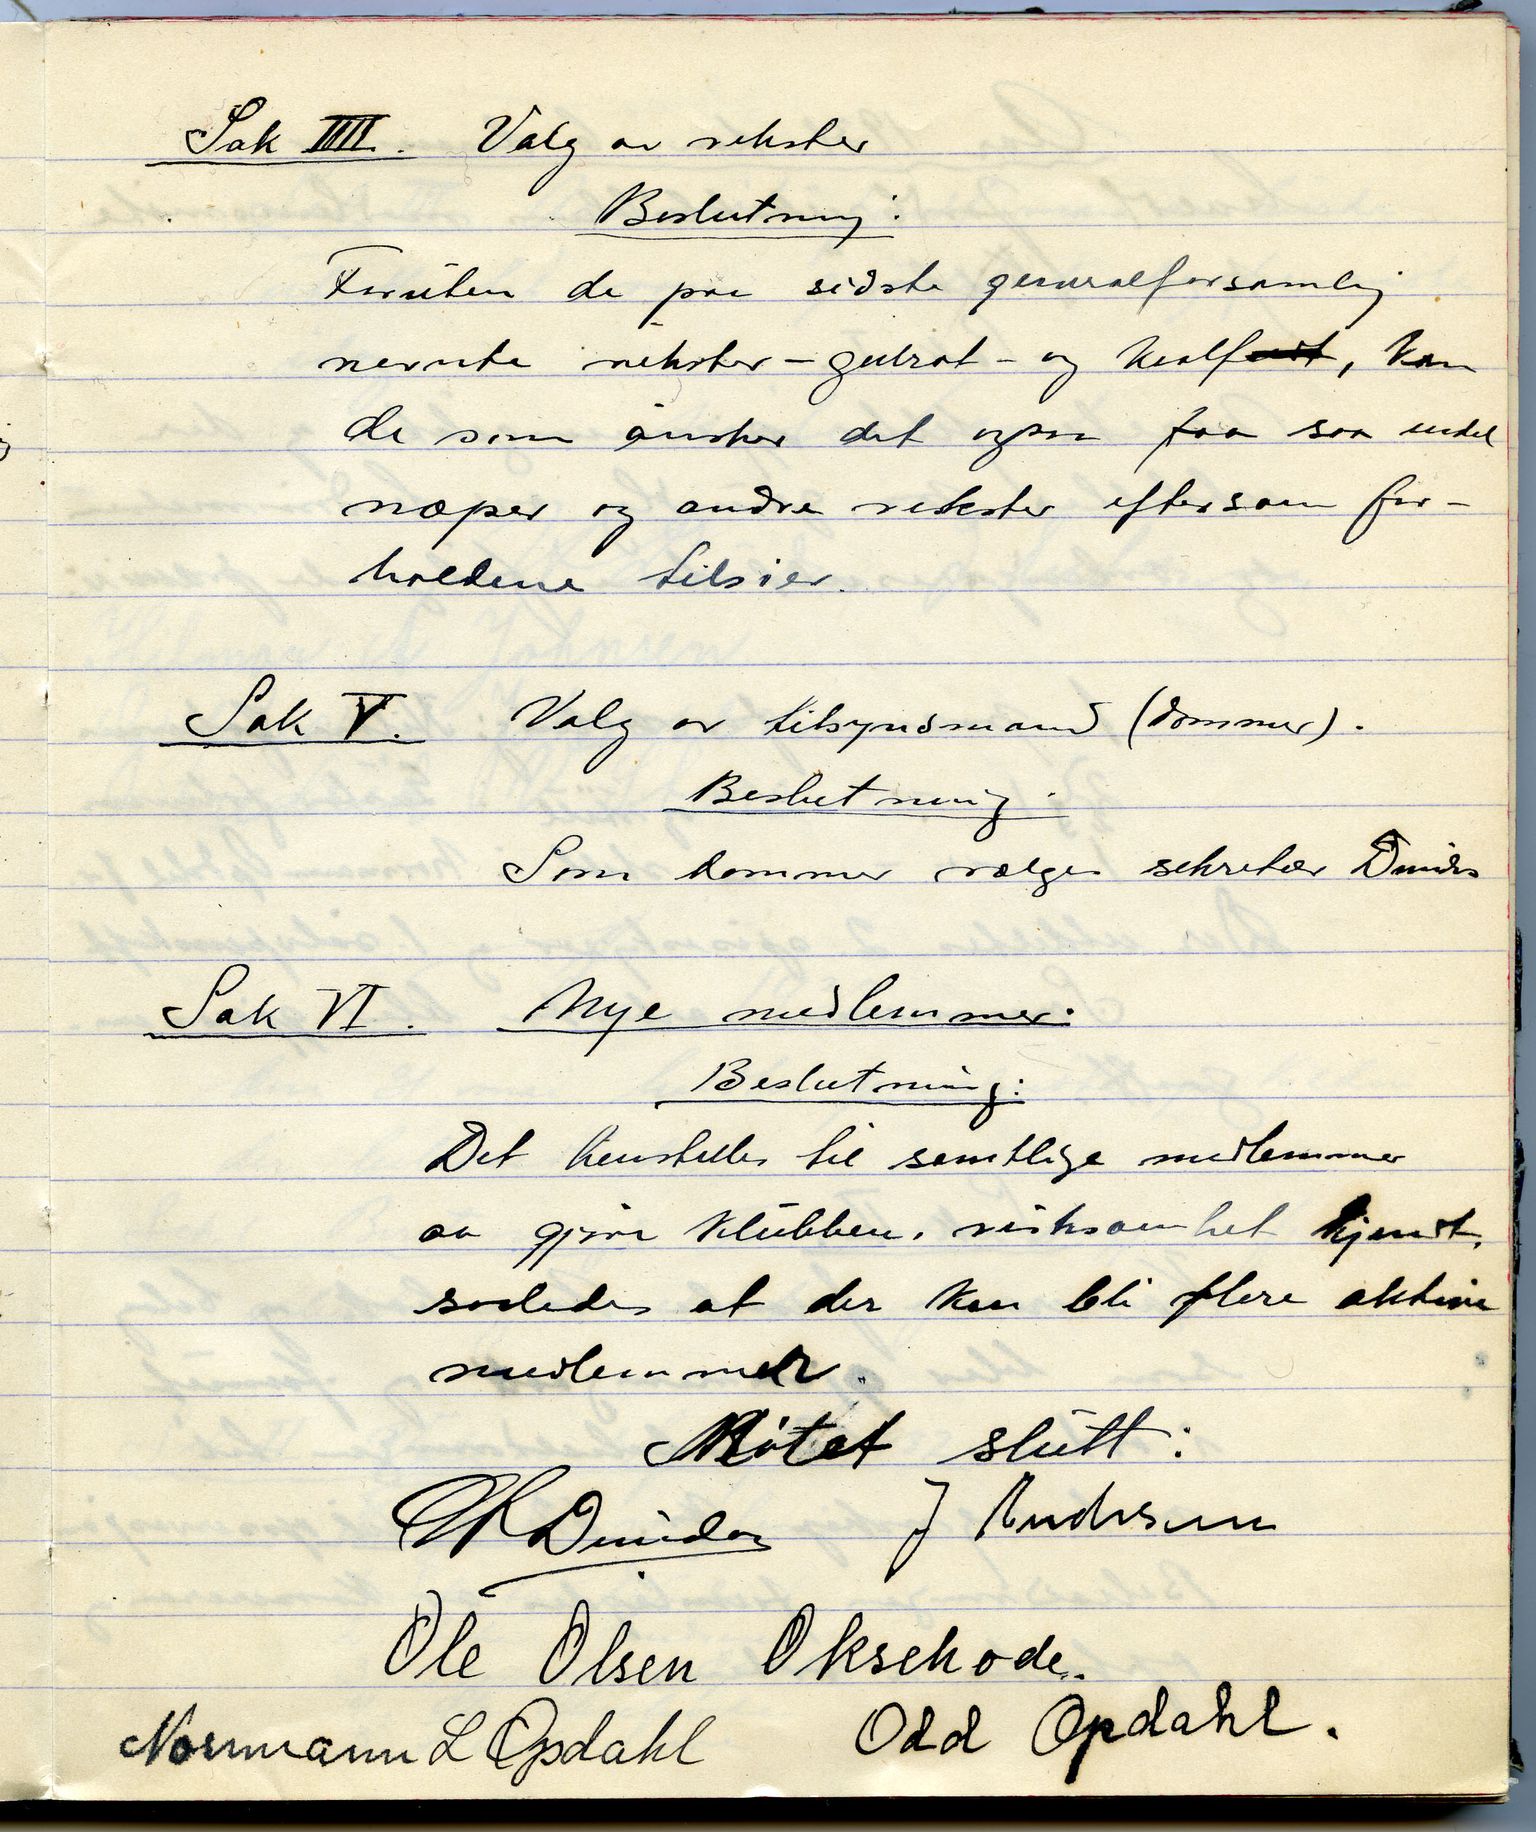 Sak IIII. Valg av vekster
Beslutning:
Foruten de paa sidste generalforsamling
nevnte vekster – gulrot – og kaalrot, kan
de som ønsker det ogsaa faa saa endel
næper og andre vekster eftersom for-
holdene tilsier.
Sak V. Valg av tilsynsmand (dommer).
Beslutning:
Som dommer vælges sekretær Dundas
Sak VI. Nye medlemmer:
Beslutning:
Det henstilles til samtlige medlemmer
aa gjøre klubbens virksomhet kjendt,
saaledes at der kan bli flere aktive
medlemmer.
Møtet slutt:
Dundas J Andersen
Ole Olsen Oksehode.
Normann L Opdahl Odd Opdahl.